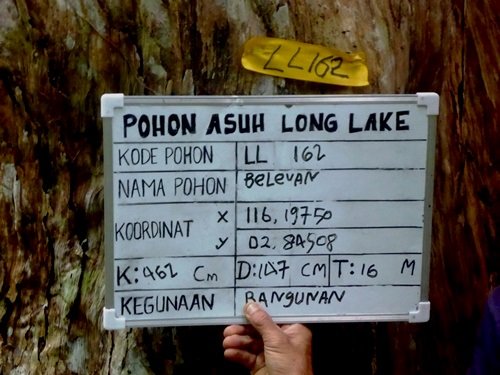 LL162
POHON ASUH LONG LAKE
KODE POHON LL 162
NAMA POHON BELEVAN
KOORDINAT X 116,19750
Y 02.84508
K: 462 Cm D:147 CM T:16 M
KEGUNAAN BANGUNAN